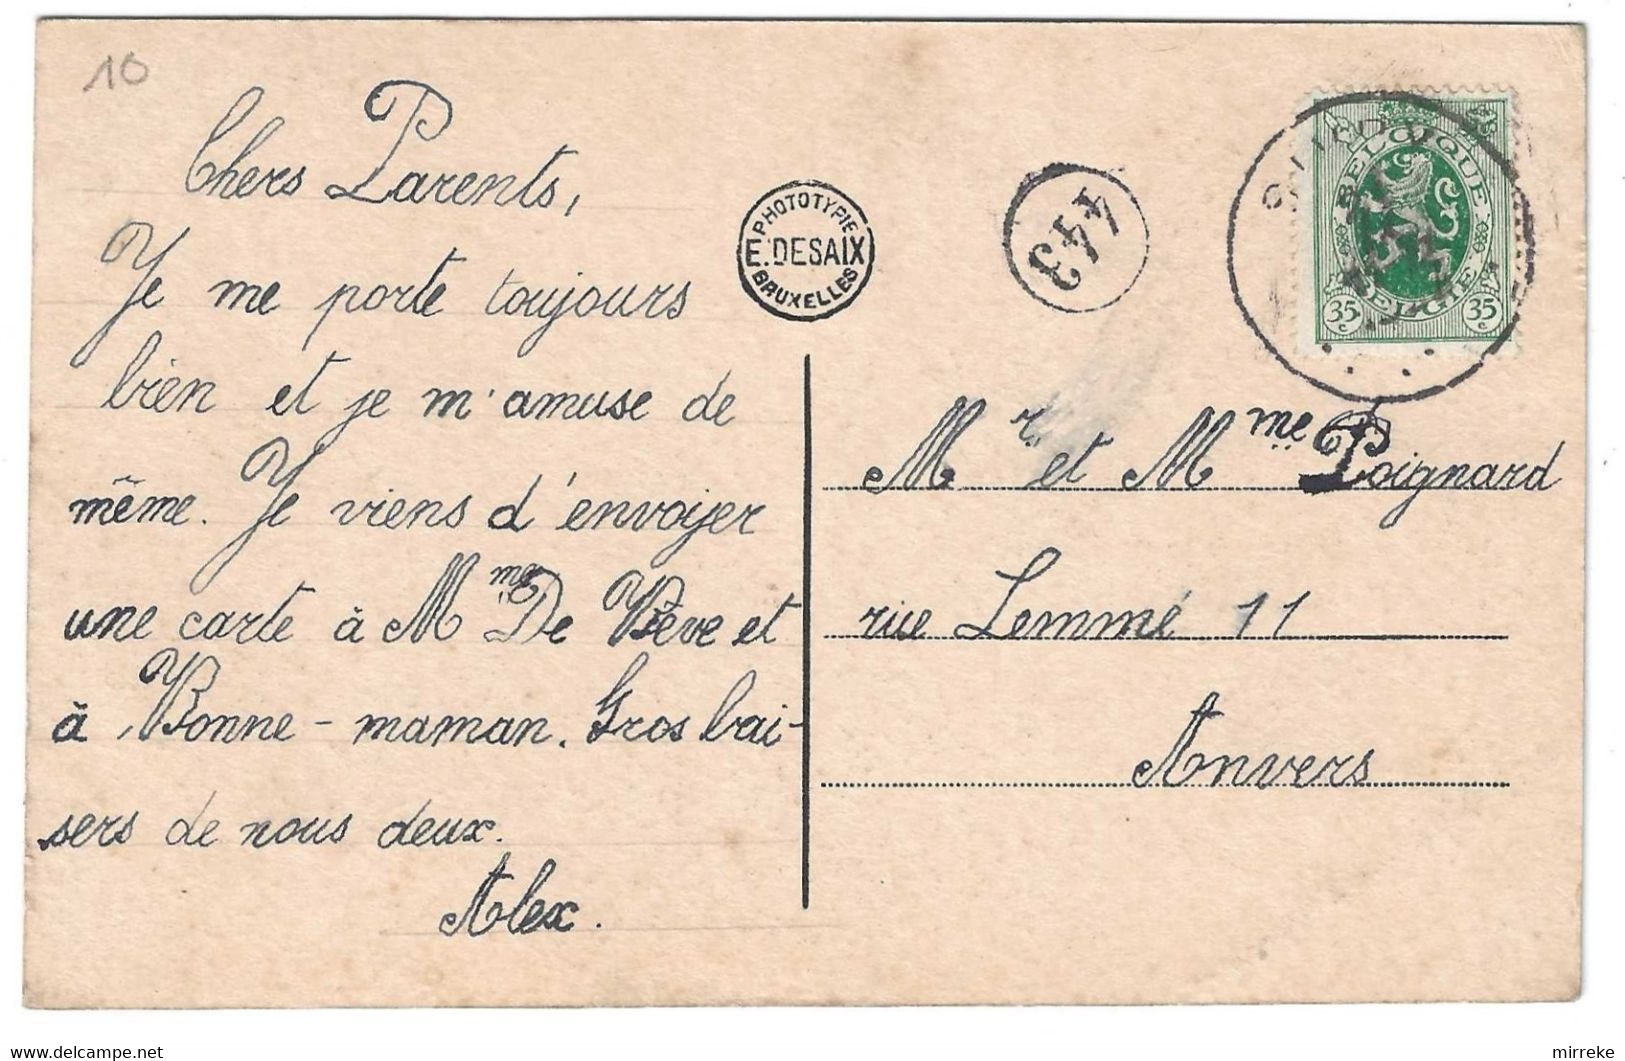 10
Chers Parents,
Je me porte toujours
bien et je m'amuse de
même. Je viens d'envoyer
une carte à Mme De Bève et
à Bonne-maman. Gros bai-
sers de nous deux.
Alex.
PHOTOTYPIE
E. DESAIX
BRUXELLES
BELGIQUE
BELGIË
35 c 35 c
Mr et Mme Poignard
rue Lemmé 11
Anvers
delcampe.net
mirreke